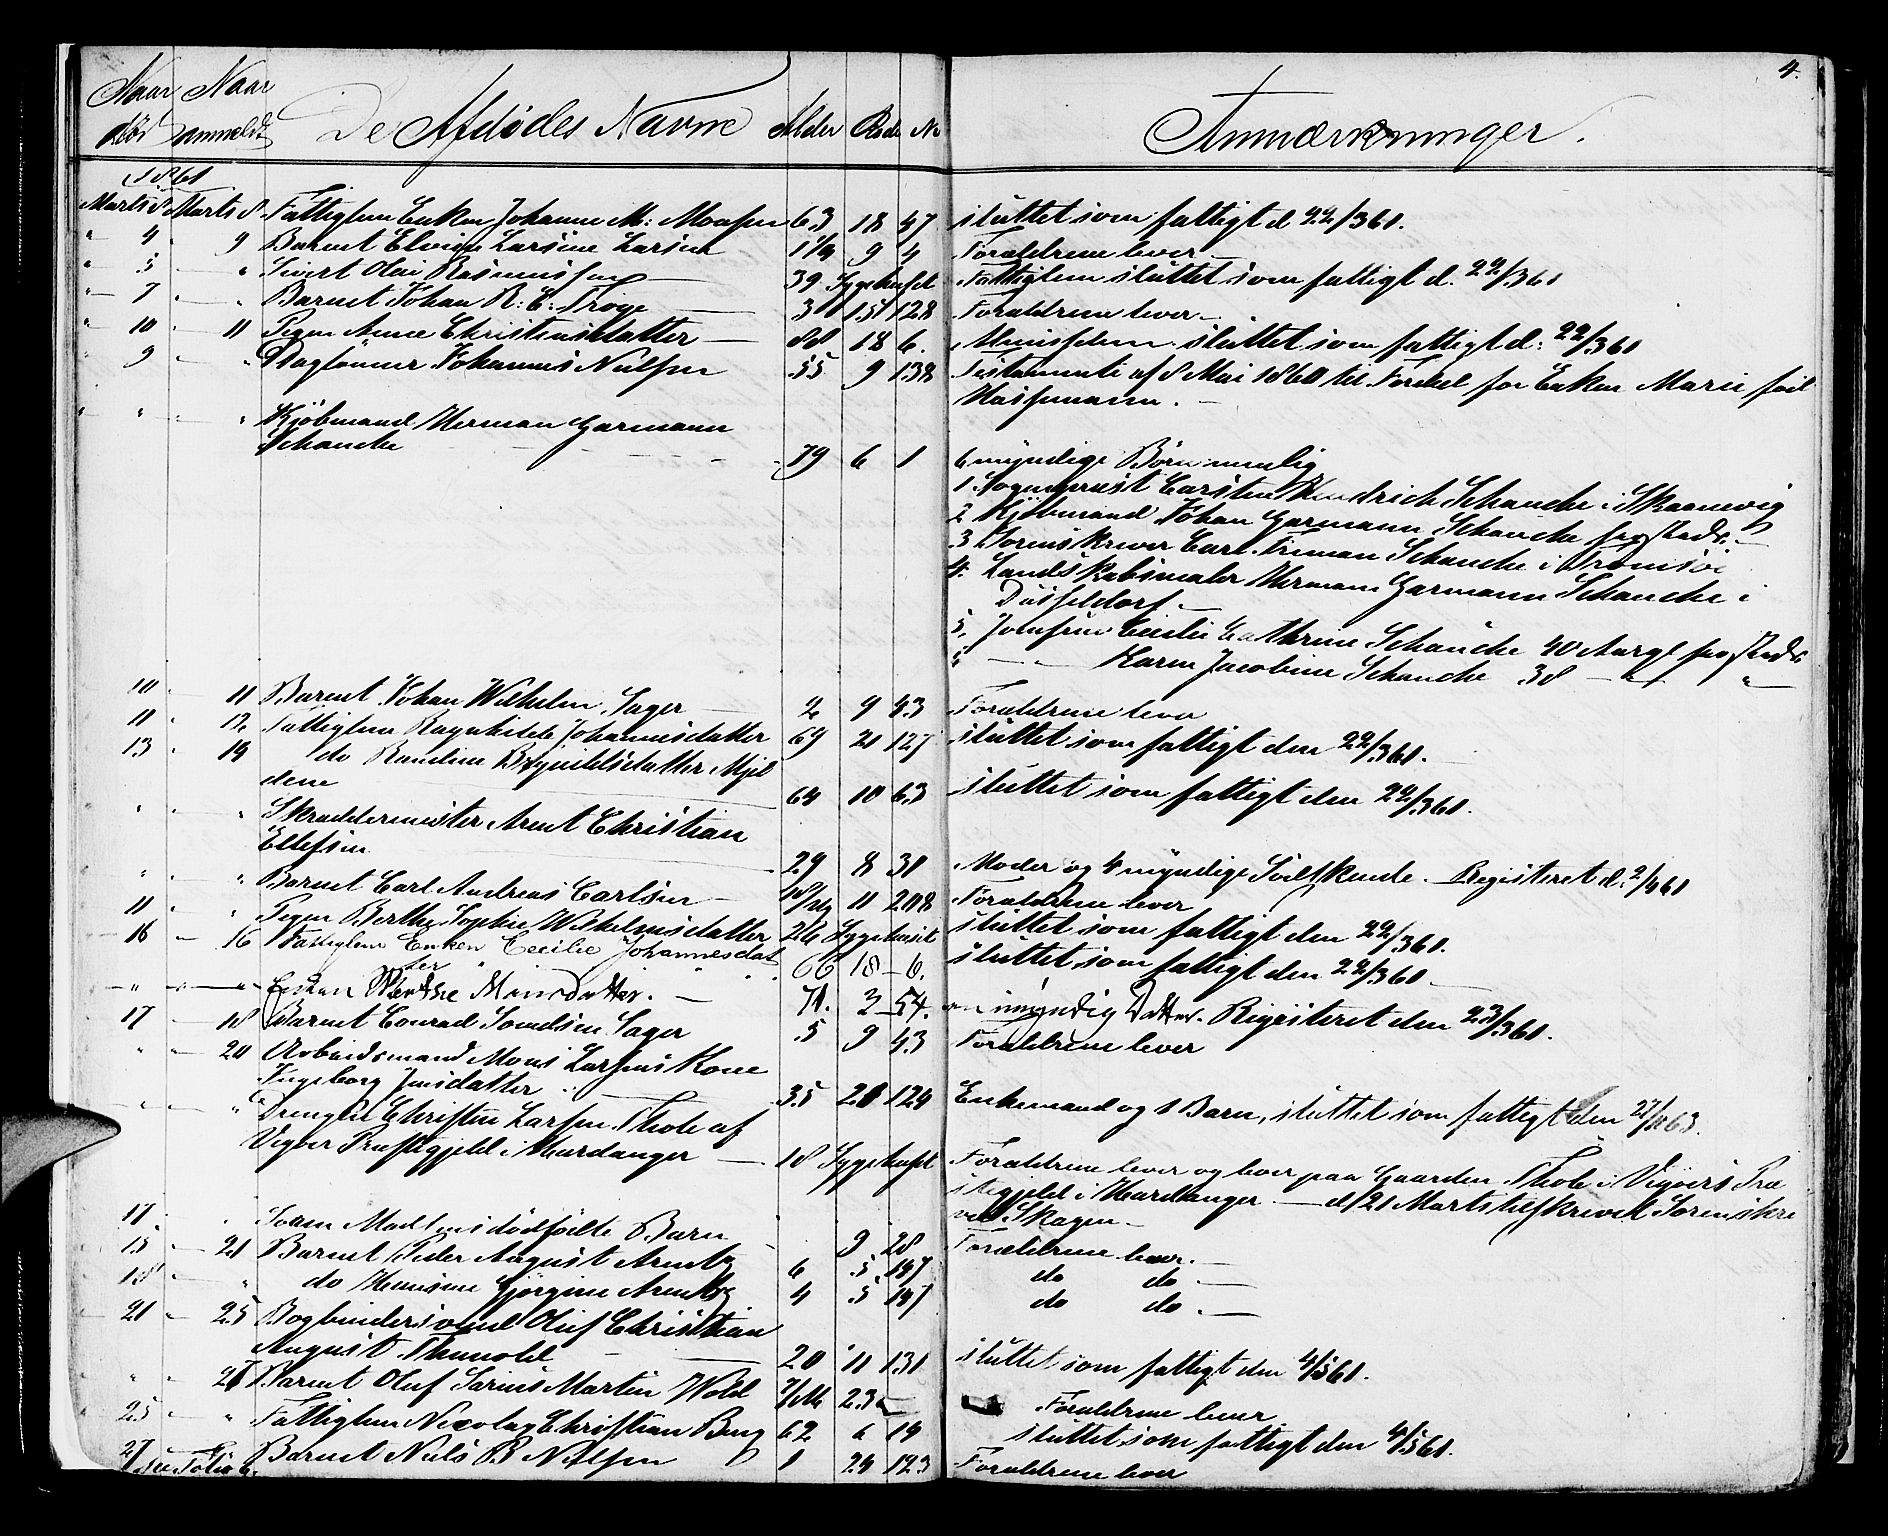 4.
Naar Naar
død anmeldt De Afdødes Navne Alder Rode No Anmærkninger.
1861
Marts 8 Marts 8 Fattiglem Enken Johanne M: Monsen 63 18 47 sluttet som fattigt d 22/3 61.
" 4 " 9 Barnet Elvine Larsine Larsen 1 1/4 9 4 Forældrene lever
" 5 " " Sivert Olai Rasmussen 39 Sygehuset Fattiglem sluttet som fattigt d. 22/3 61
" 7 " " Barnet Johan R: C: Troye 3 15 128 Forældrene lever
" 10 " 11 Pigen Anne Christensdatter 88 18 6. sluttet som fattigt d: 22/3 61
9 " " Daglønner Johannes Nielsen 55 9 138 Testamente af 8 Mai 1860 til Fordel for Enken Marie født
Hassemann.
" " " Kjøbmand Herman Garmann
Schanche 79 6 1 6 myndige Børn nemlig
1. Sogneprest Carsten Hendrich Schanche i Skaanevig
2 Kjøbmand Johan Garmann Schanche her Stede
3 Sorenskriver Carl Friman Schanche i Tromsøe
4. Landskabsmaler Herman Garmann Schanche i
Düsseldorf
5. Jomfrue Cecilie Cathrine Schanche 40 Aar gl her Stede
6 " Karen Jacobine Schanche 38 " "
10 " 11 Barnet Johan Wilhelm Sager 2 9 43 Forældrene lever
11 " 12 Fattiglem Ragnhilde Johannesdatter 69 21 127 sluttet som fattigt den 22/3 61.
13 " 14 do Randine Brynildsdatter Mjel
dene 64 10 63 sluttet som fattigt den 22/3 61.
" " " Skræddermester Arent Christian
Ellefsen 29 8 30 Moder og 4 myndige Sødskende. Registeret d. 2/4 61
" " " Barnet Carl Andreas Carlsen 11 208 Forældrene lever
11 " " Pigen Berthe Sophie Wilhelmsdatter 26 Sygehuset sluttet som fattigt den 22/3 61.
16 " 16 Fattiglem Enken Cecilie Johannesdat
ter 66 18 6. sluttet som fattigt den 22/3 61.
" " " Enken Berthe Monsdatter. 71. 2 54. en umyndig Datter. Registeret den 23/3 61.
17 " 18 Barnet Conrad Sager 5 9 43 Forældrene lever
" " 20 Arbeidsmand Mons Larsens Kone
Ingeborg Jensdatter 35 21 124 Enkemand og 1 Barn, sluttet som fattigt den
" " " Drengen Christen Larsen Thole af
Vigøer Præstegjeld i Hardanger 18 Sygehuset Forældrene lever og boer paa Gaarden Thole i Vigøers Præ
stegjeld i Hardanger d/21 Marts tilskrevet Sorenskri
ver Skagen.
17 " Svein Madsens dødfødte Barn 9 28 Forældrene lever.
15 " 21 Barnet Peder August Arentz 6 5 147 do do
18 " " do Hansine Gjørgine Arentz 4 5 147 do do
21 " 25 Bogbindersvend Oluf Christian
August Thunold 20 11 131 sluttet som fattigt den 4/5 61.
" " 27 Barnet Oluf Sørens Martin Wold 7/M 23 Forældrene lever
25 " " Fattiglem Nicolay Christian Berg 62 6 14 sluttet som fattigt den 4/5 61.
27 Barnet Niels B Nilsen 1 24 123 Forældrene lever
See Folio 6.